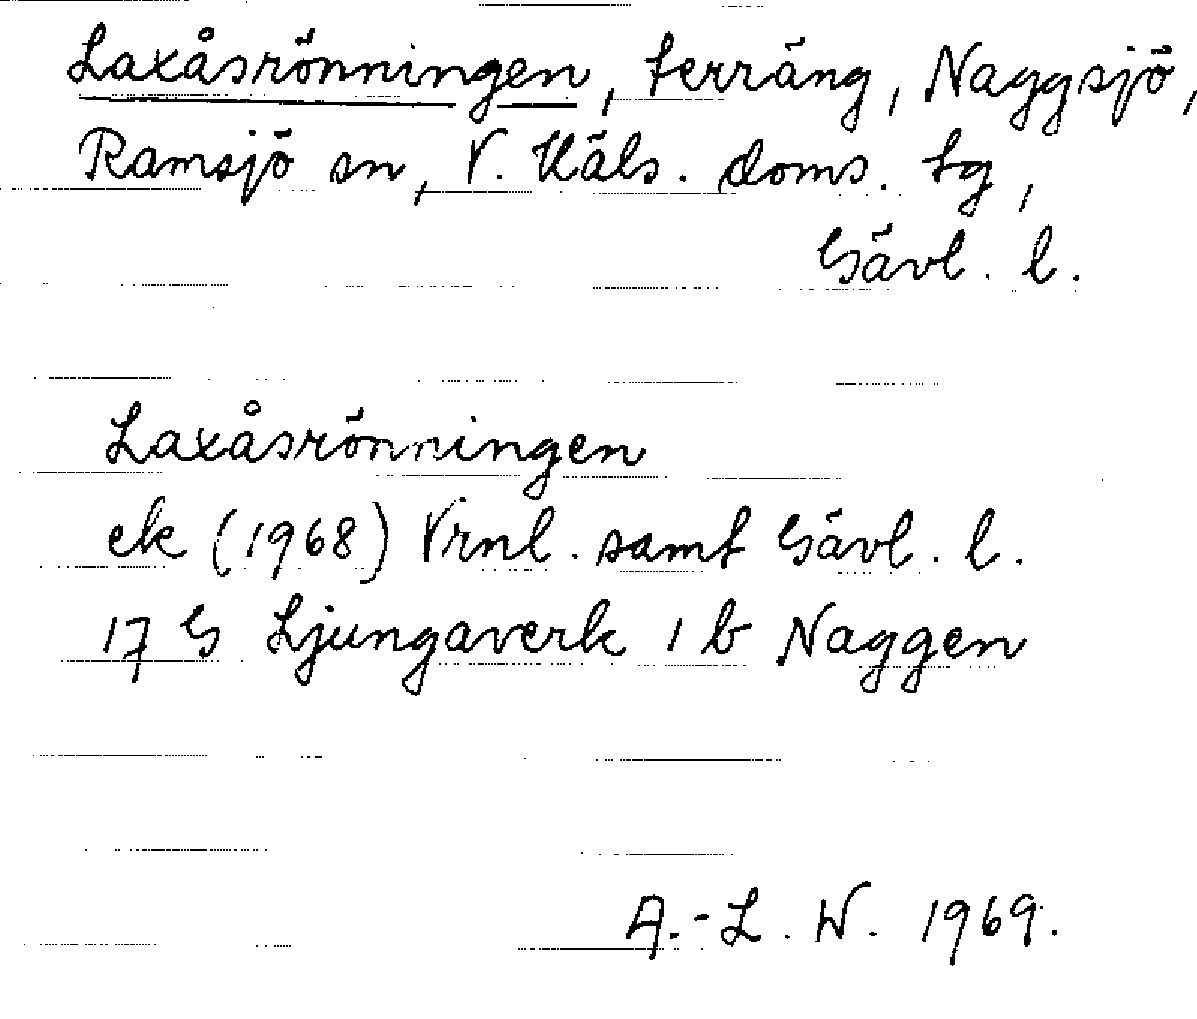 Laxåsrönningen, terräng, Naggsjö,
Ramsjö sn, V. Häls. doms. tg,
Gävl. l.
Laxåsrönningen
ek (1968) Vrnl. samt Gävl. l.
17 G Ljungaverk 1 b Naggen
A.-L. W. 1969.